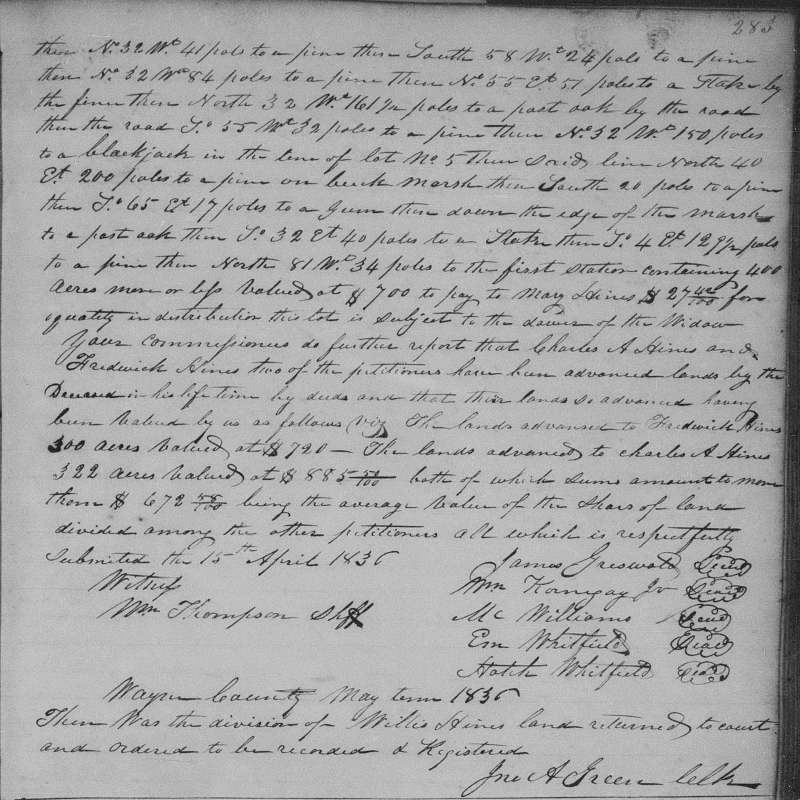 283
then No. 32 Wt. 41 pols to a pine then South 58 Wt. 24 pols to a pine
then No. 32 Wt 84 poles to a pine then No. 55 Et. 51 poles to a Stake by
the fence then North 32 Wt. 161 1/2 poles to a post oak by the road
then the road So. 55 Wt 32 poles to a pine then No. 32 Wt. 150 poles
to a blackjack in the line of lot No 5 then said line North 40
Et. 200 poles to a pine on beck marsh then South 20 poles to a pine
then So. 65 Et 17 poles to a Gum then down the edge of the marsh
to a post oak then So. 32 Et 40 poles to a Stake then So. 4 Et. 129 1/2 pols
to a pine then North 81 Wt. 34 poles to the first station containing 400
acres more or less Valued at $700 to pay to Mary Hines $27 42/100 for
equality in distribution this lot is subject to the dower of the Widow
Your commissioners do further report that Charles A Hines and
Fredrick Hines two of the petitioners have been advanced lands by the
Deceased in his life time by deeds and that their lands so advanced having
been Valued by us as follows (viz The lands advanced to Fredrick Hines
300 acres Valued at $720 — The lands advanced to charles A Hines
322 acres Valued at $885 50/100 both of which sums amount to more
than $672 58/100 being the average value of the Shars of land
divided among the other petitioners all which is respectfully
Submitted the 15th April 1836
James Griswold (Seal)
Witness
Wm Kornegay Jr (Seal)
Wm Thompson Shff
Mc Williams (Seal)
Em Whitfield (Seal)
Hatch Whitfield (Seal)
Wayne County May term 1836
Then Was the division of Willis Hines land returned to court
and ordered to be recorded & Registered
Jno A Green Clk